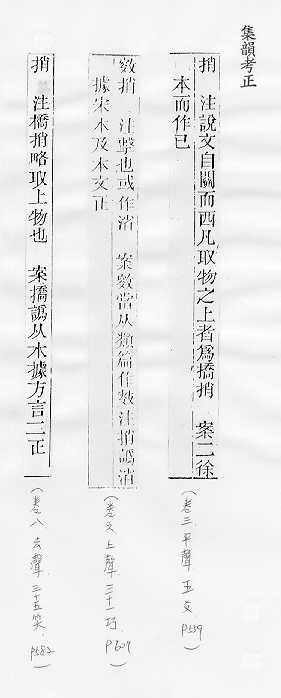 集韻考正
捎 注說文自關而西凡取物之上者爲撟捎 案二徐
本而作已
(卷三 平聲 五爻)
捎 注擊也或作 案 當从類篇作 注捎譌消
據宋本及本文正
(卷六上聲三十一巧 P607)
捎 注橋捎略取上物也 案撟譌从木據方言二正
(卷八 去聲 三十五笑 P582)